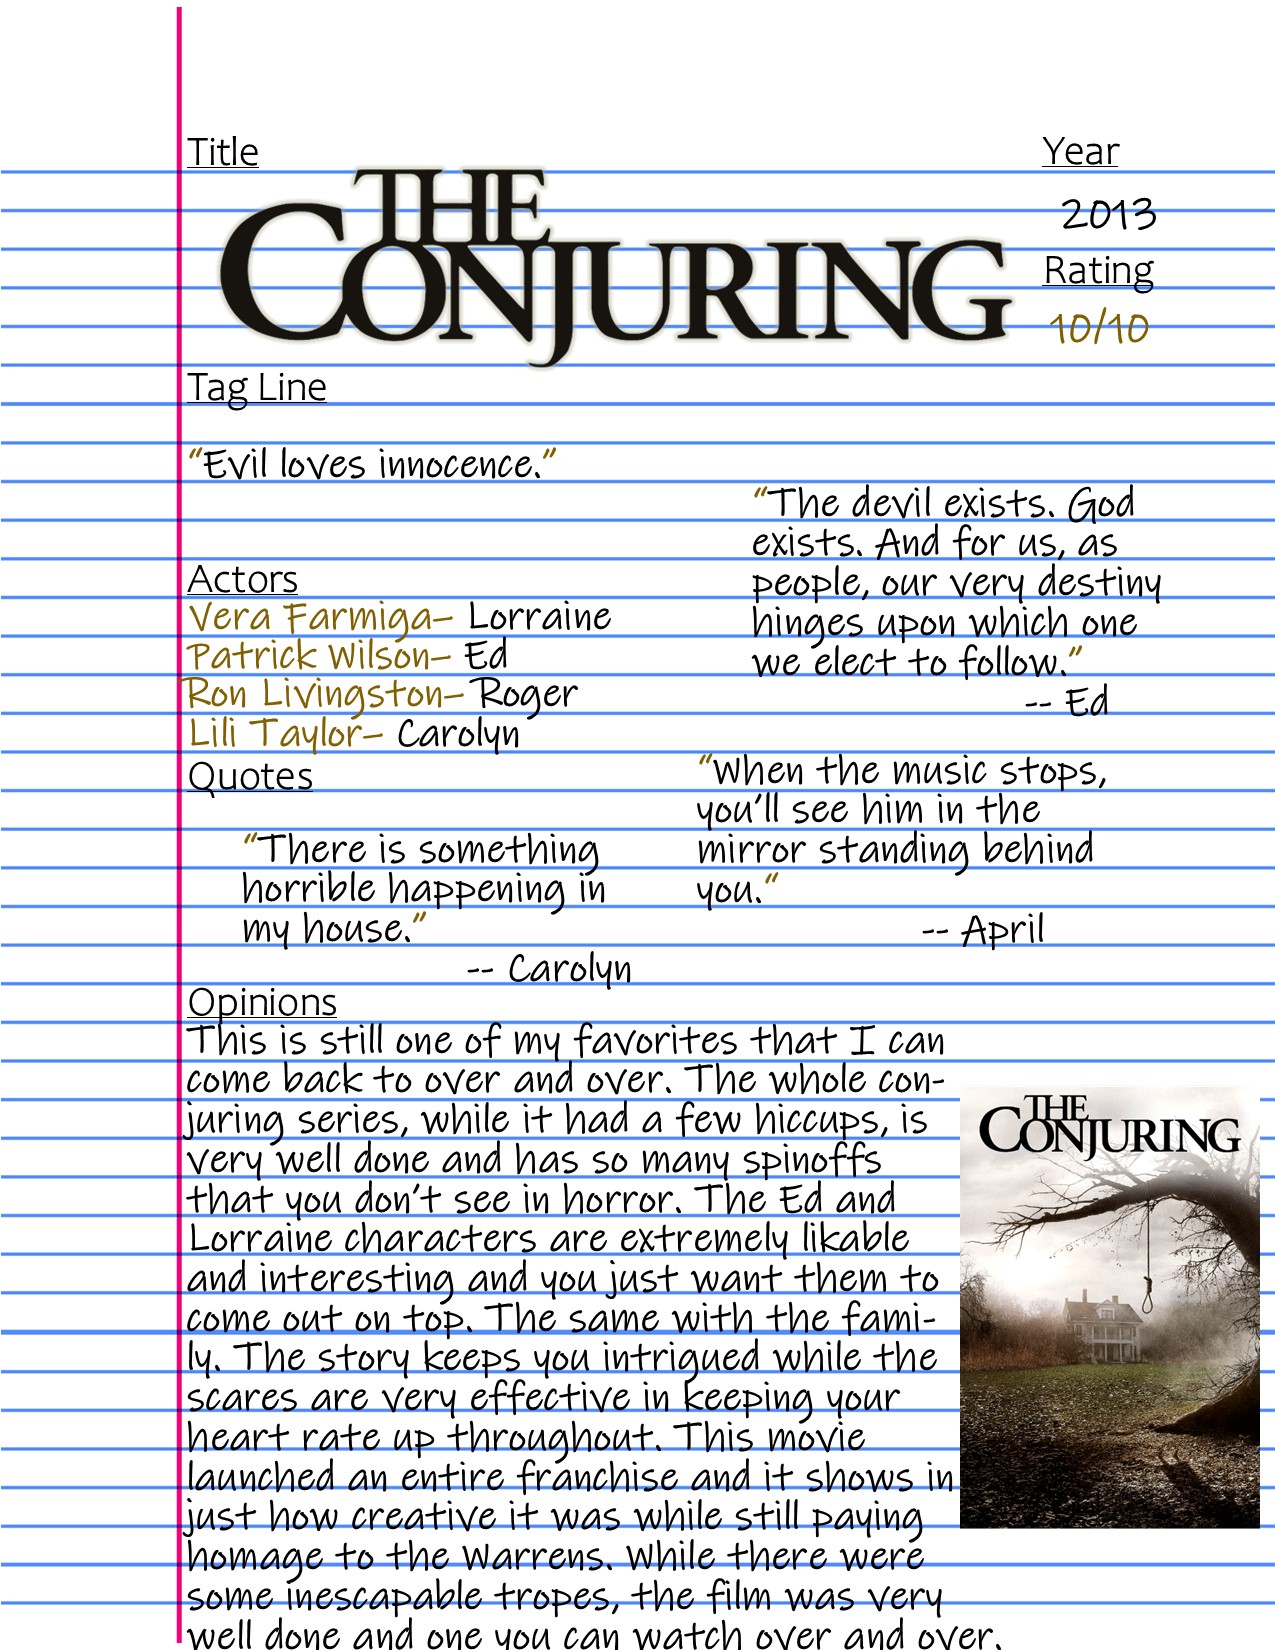 Title
THE
CONJURING
Year
2013
Rating
10/10
Tag Line
"Evil loves innocence."
"The devil exists. God
exists. And for us, as
people, our very destiny
hinges upon which one
we elect to follow."
-- Ed
Actors
Vera Farmiga– Lorraine
Patrick Wilson– Ed
Ron Livingston– Roger
Lili Taylor– Carolyn
Quotes
"When the music stops,
you'll see him in the
mirror standing behind
you."
-- April
"There is something
horrible happening in
my house."
-- Carolyn
Opinions
This is still one of my favorites that I can
come back to over and over. The whole con-
juring series, while it had a few hiccups, is
very well done and has so many spinoffs
that you don't see in horror. The Ed and
Lorraine characters are extremely likable
and interesting and you just want them to
come out on top. The same with the fami-
ly. The story keeps you intrigued while the
scares are very effective in keeping your
heart rate up throughout. This movie
launched an entire franchise and it shows in
just how creative it was while still paying
homage to the Warrens. While there were
some inescapable tropes, the film was very
well done and one you can watch over and over.
THE
CONJURING